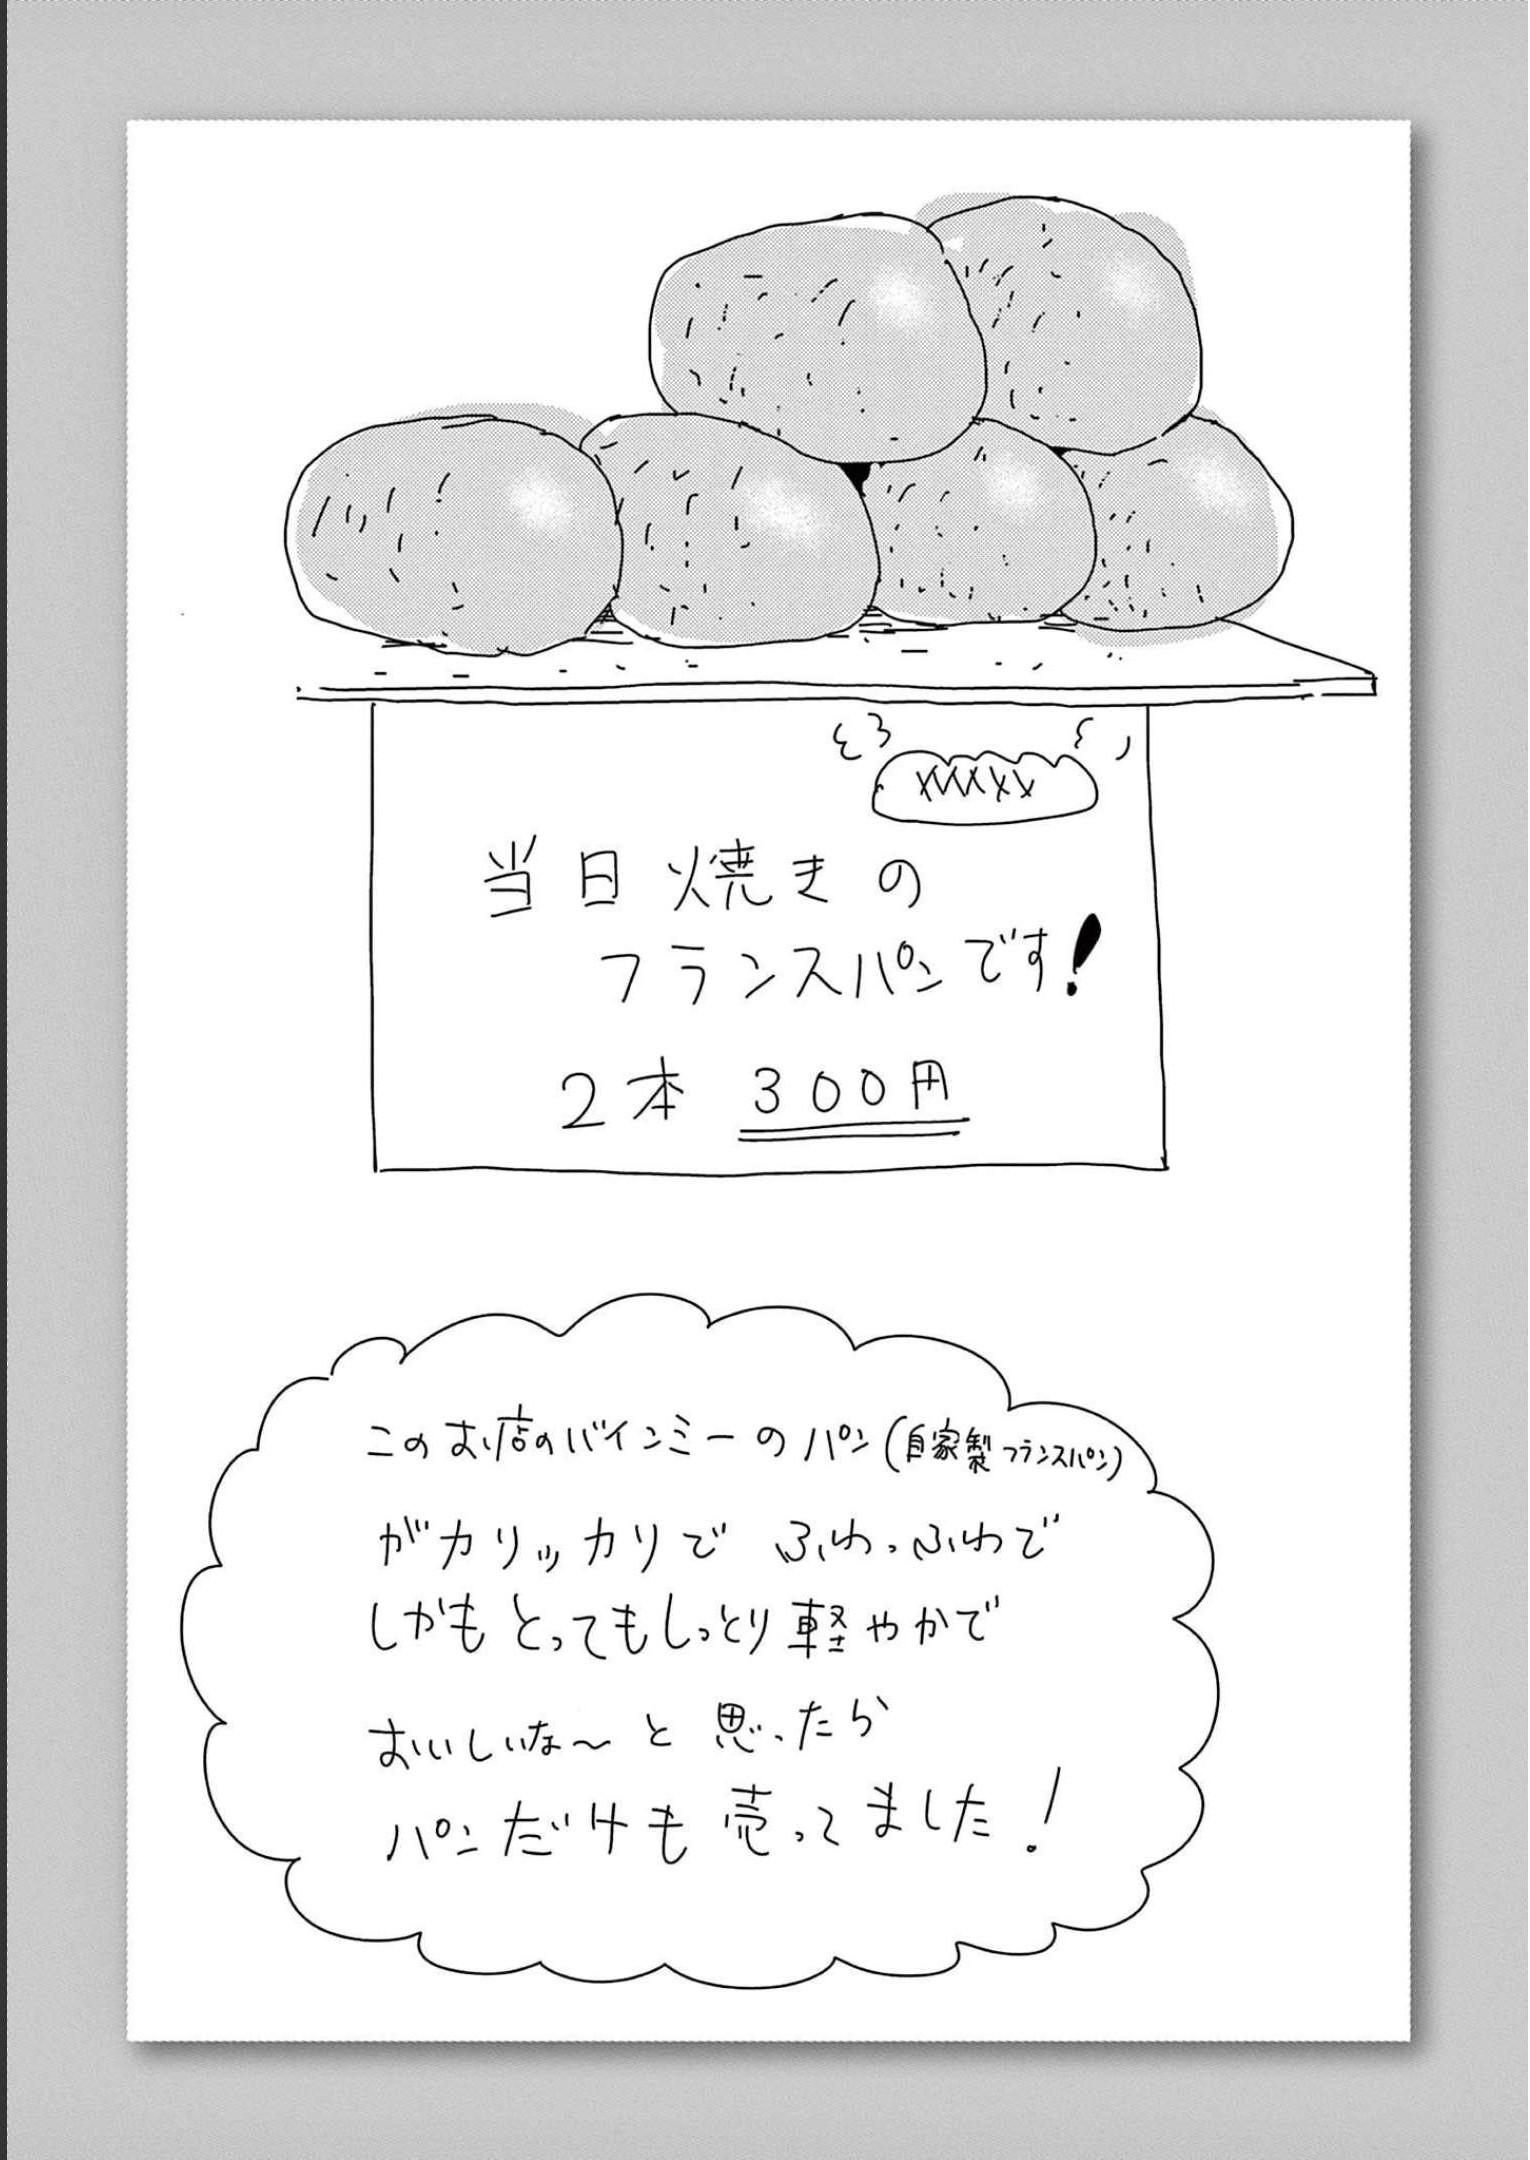 当日焼きの
フランスパンです!
2本 300円
このお店のバインミーのパン(自家製フランスパン)
がカリッカリで ふわっふわで
しかもとってもしっとり軽やかで
おいしいな〜と思ったら
パンだけも売ってました!